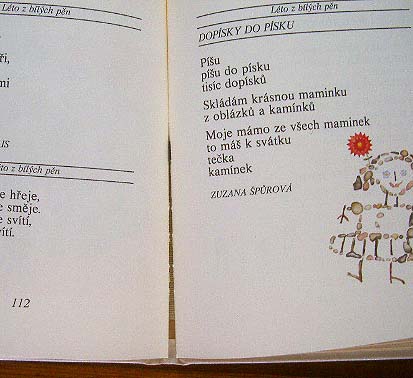 Léto z bílých pěn
IS
Léto z bílých pěn
e hřeje,
e směje.
e svítí,
112
Léto z bílých pěn
DOPÍSKY DO PÍSKU
Píšu
píšu do písku
tisíc dopísků
Skládám krásnou maminku
z oblázků a kamínků
Moje mámo ze všech maminek
to máš k svátku
tečka
kamínek
ZUZANA ŠPŮROVÁ